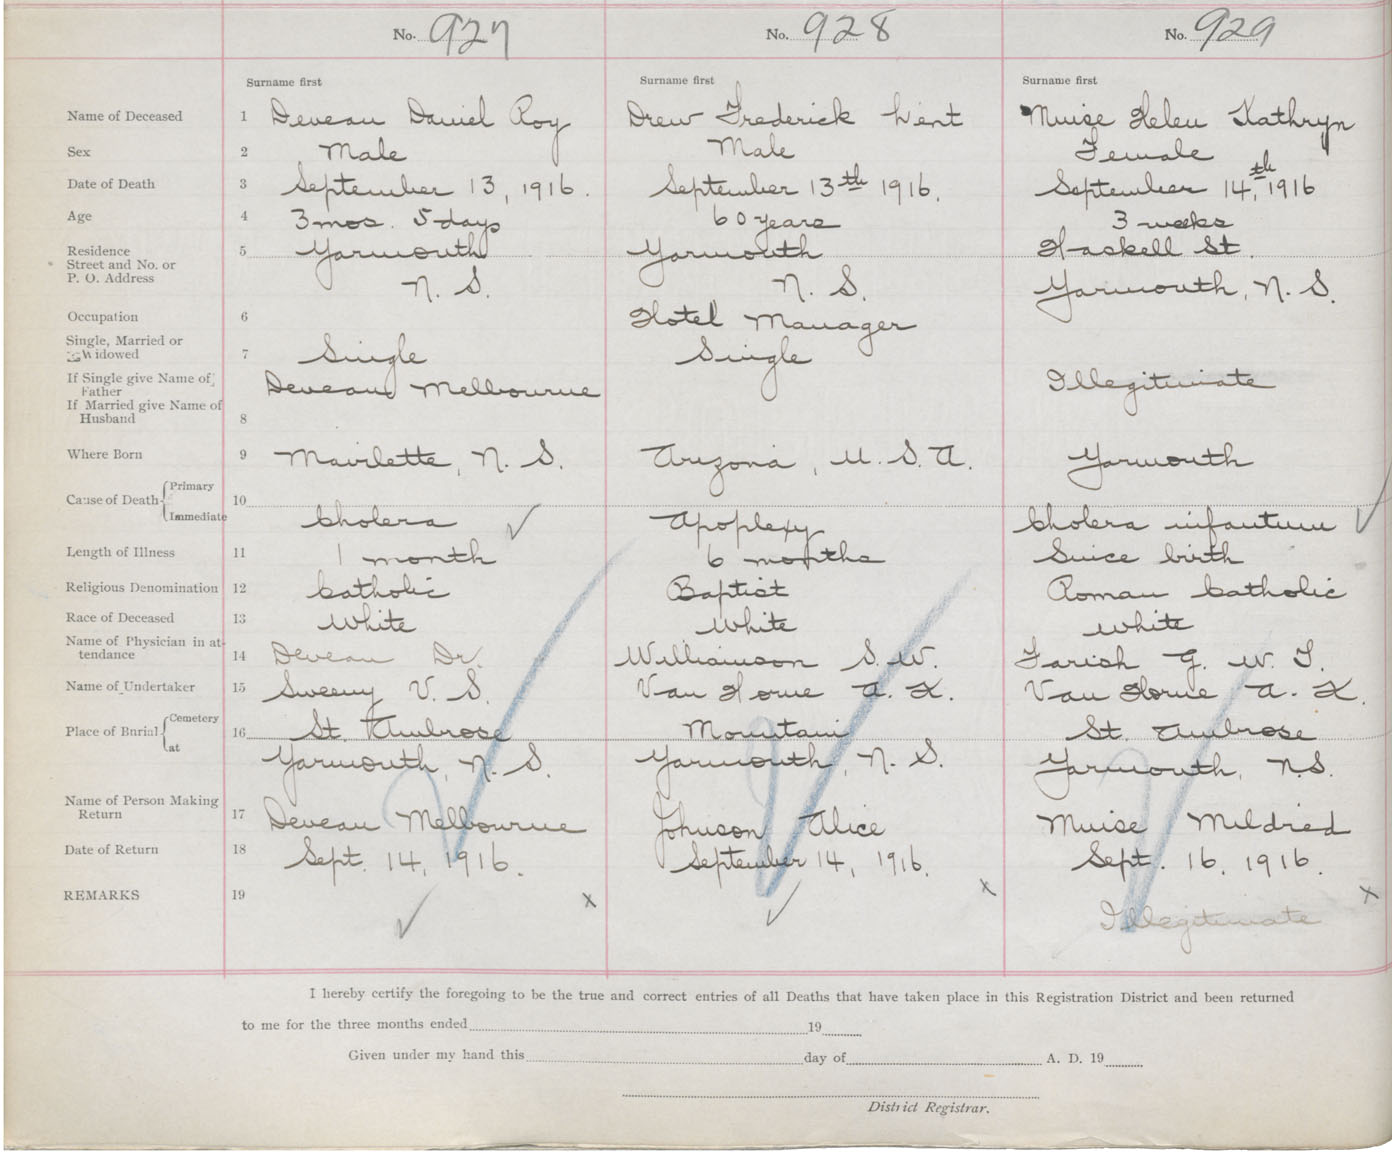 No. 927 No. 928 No. 929
Surname first Surname first Surname first
Name of Deceased 1 Deveau Daniel Roy Drew Frederick Went Muise Helen Kathryn
Sex 2 Male Male Female
Date of Death 3 September 13, 1916. September 13th 1916. September 14,th 1916
Age 4 3 mos. 5 days 60 years 3 weeks
Residence 5 Yarmouth Yarmouth Haskell St.
Street and No. or
P. O. Address N. S. N. S. Yarmouth, N. S.
Occupation 6 Hotel Manager
Single, Married or
Widowed 7 Single Single
If Single give Name of Father Deveau Melbourne Illegitimate
If Married give Name of
Husband 8
Where Born 9 Mavilette, N. S. Arizona, U. S. A. Yarmouth
Cause of Death Primary 10
Immediate Cholera Apoplexy Cholera infantum
Length of Illness 11 1 month 6 months Since birth
Religious Denomination 12 Catholic Baptist Roman Catholic
Race of Deceased 13 White White White
Name of Physician in at-
tendance 14 Deveau Dr. Williamson S. W. Farish G. W. T.
Name of Undertaker 15 Sweeny V. S. Van Horne A. K. Van Horne A. K.
Place of Burial Cemetery 16 St. Ambrose Mountain St. Ambrose
at Yarmouth, N. S. Yarmouth, N. S. Yarmouth, N.S.
Name of Person Making
Return 17 Deveau Melbourne Johnson Alice Muise Mildred
Date of Return 18 Sept. 14, 1916. September 14, 1916. Sept. 16, 1916.
REMARKS 19 x x x
Illegitimate
I hereby certify the foregoing to be the true and correct entries of all Deaths that have taken place in this Registration District and been returned
to me for the three months ended 19
Given under my hand this day of A. D. 19
District Registrar.